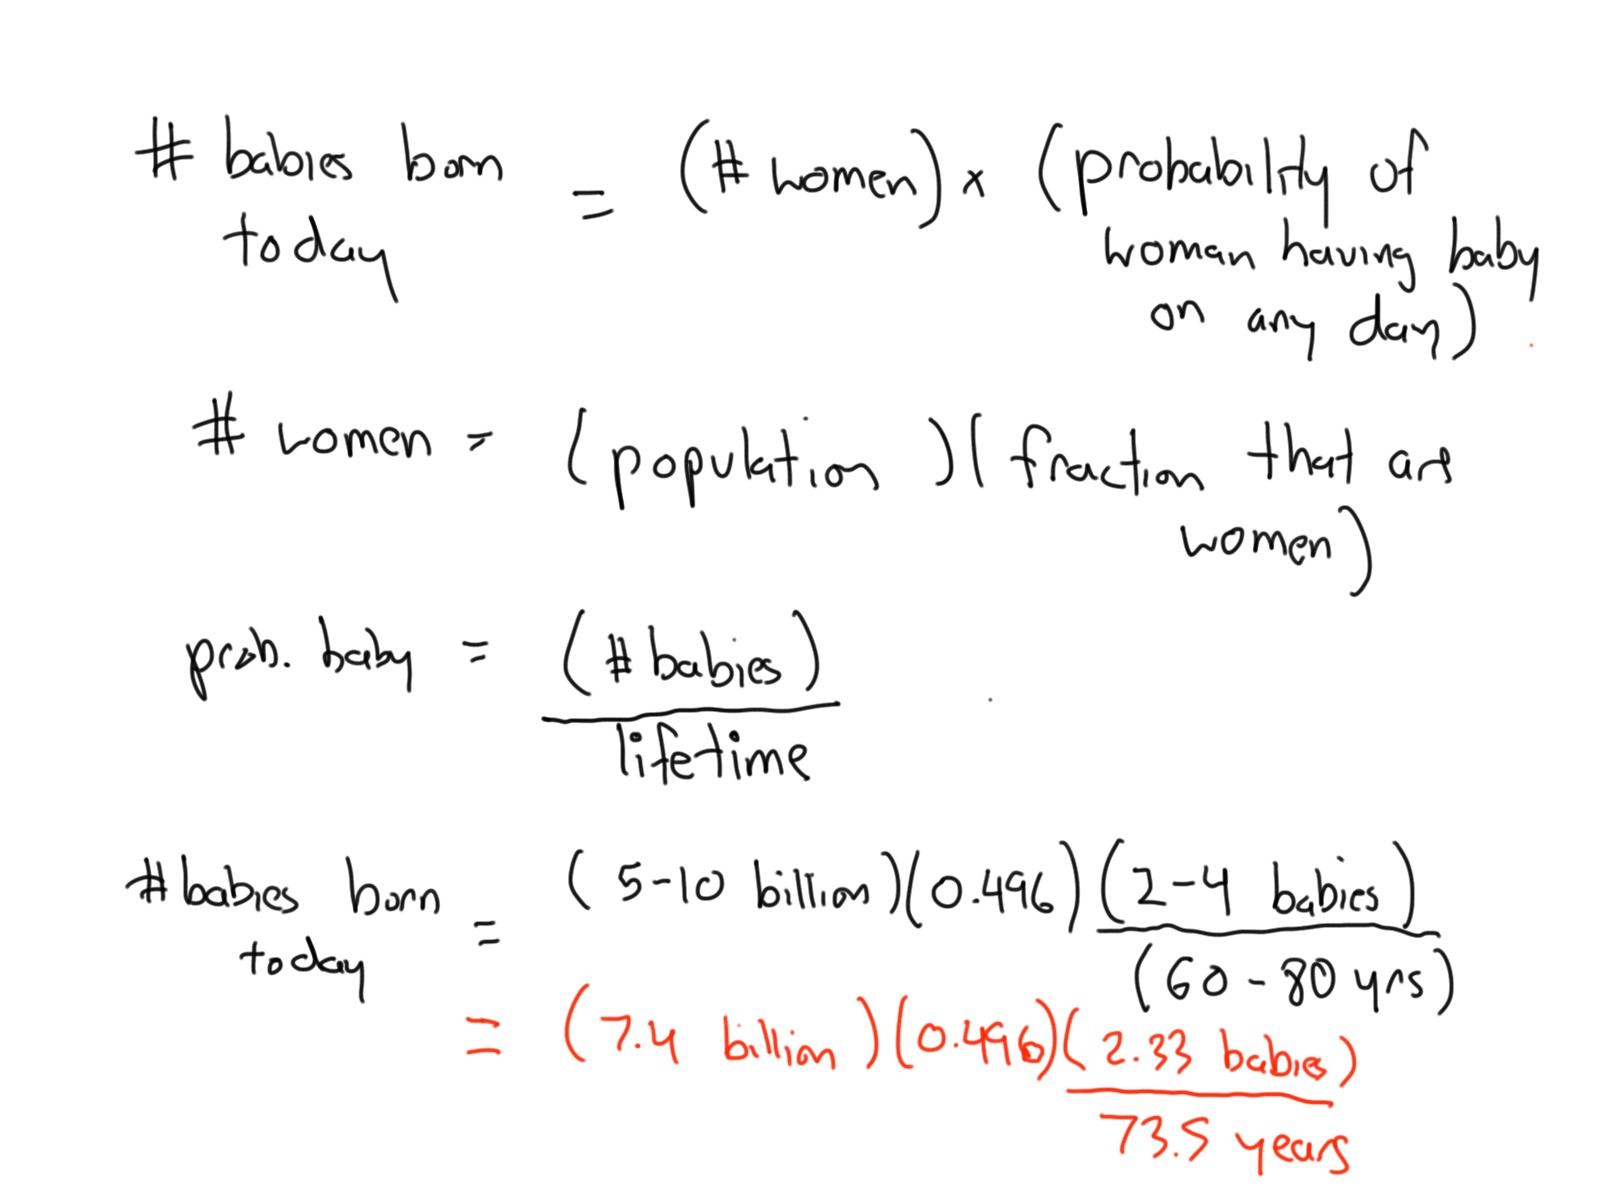 # babies born = (# women) x (probability of
today woman having baby
on any day)
# women = (population)(fraction that are
women)
prob. baby = (# babies)
lifetime
# babies born = (5-10 billion)(0.496)(2-4 babies)
today (60-80 yrs)
= (7.4 billion)(0.496)(2.33 babies)
73.5 years